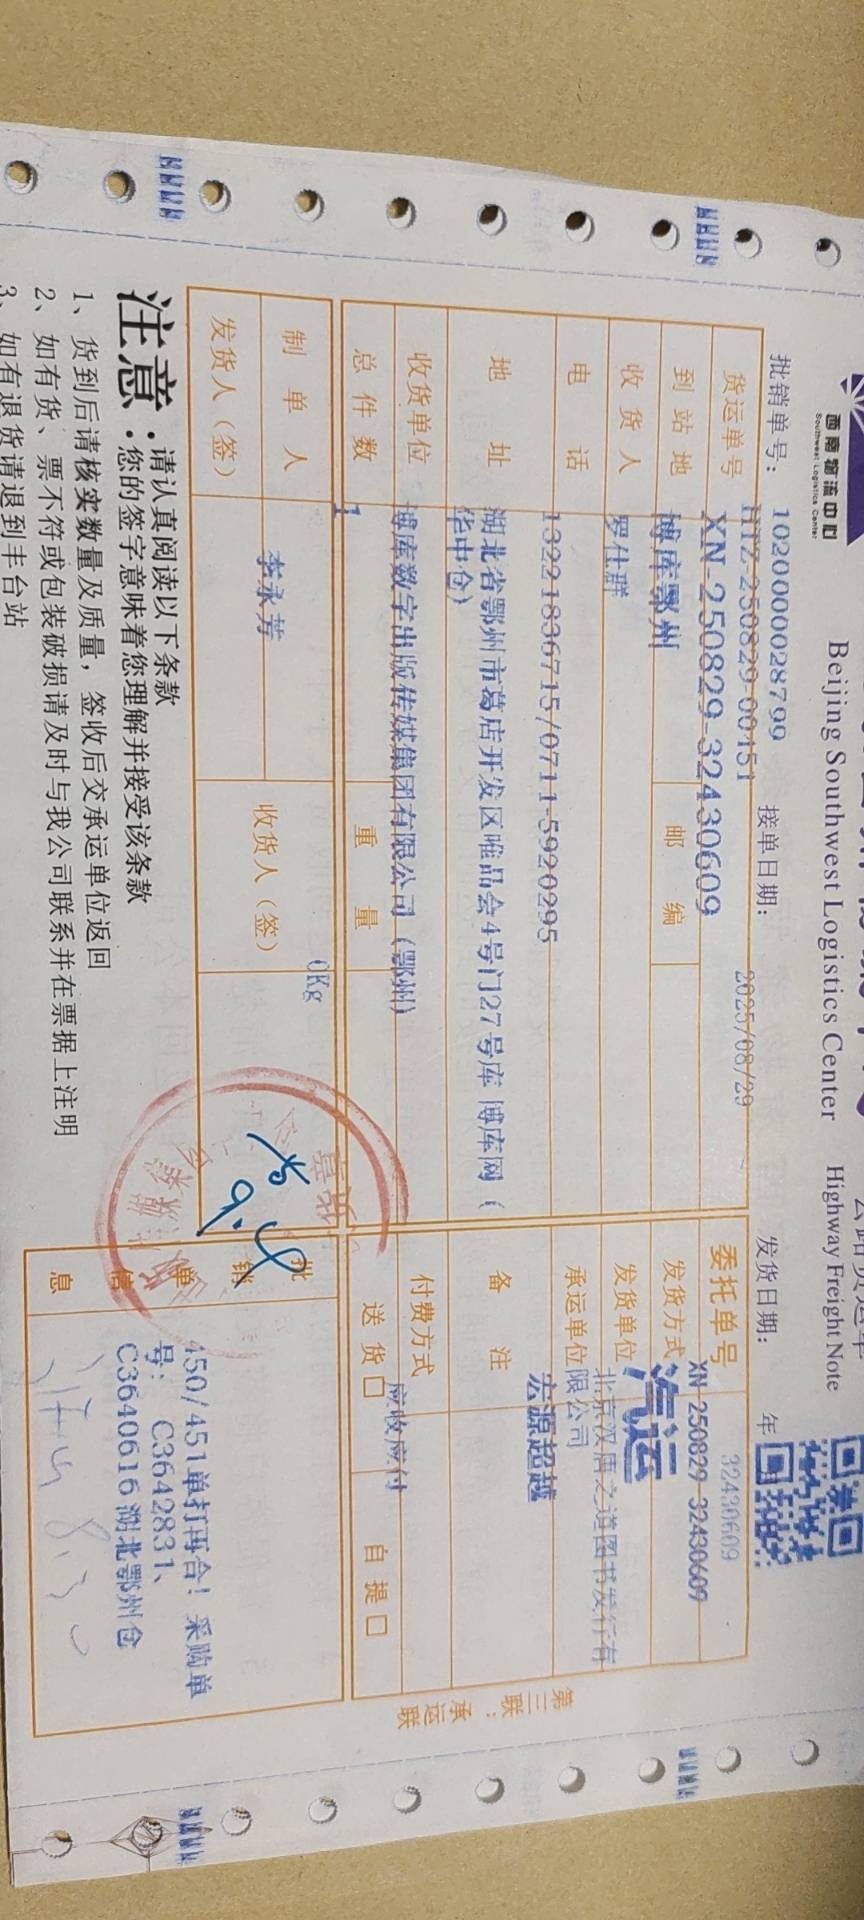 西南物流中心
Southwest Logistics Center
Beijing Southwest Logistics Center Highway Freight Note
批销单号: 1020000028799 接单日期: 2025/08/29 发货日期: 年
HTZ-250829-00451
货运单号 XN-250829-32430609
委托单号 32430609
XN-250829-32430609
到站地 博库鄂州 邮编
发货方式 汽运
收货人 罗仕群
发货单位 北京汉唐之道图书发行有限公司
电话 13221836715/0711-5920295
承运单位 宏源超越
地址 湖北省鄂州市葛店开发区唯品会4号门27号库 博库网(
华中仓)
备注
收货单位 博库数字出版传媒集团有限公司(鄂州)
付费方式 应收应付
总件数 1 重量 0Kg
送货□ 自提□
制单人 李永芳 收货人(签)
发货人(签)
批销单信息
450/451单打再合! 采购单
号: C3642831、
C3640616 湖北鄂州仓
第三联:承运联
注意:
请认真阅读以下条款
您的签字意味着您理解并接受该条款
1、货到后请核实数量及质量,签收后交承运单位返回
2、如有货、票不符或包装破损请及时与我公司联系并在票据上注明
3、如有退货请退到丰台站